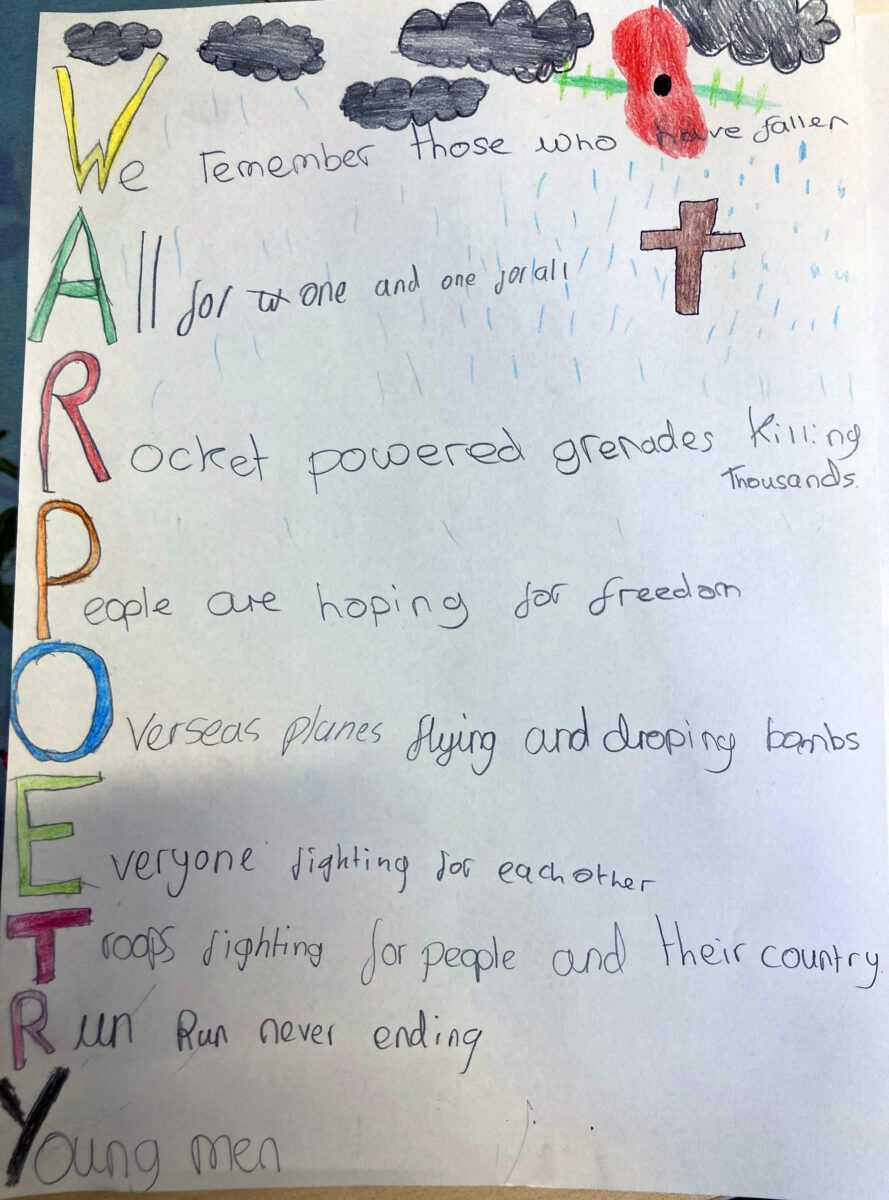 We remember those who have fallen
All for one and one for all
Rocket powered grenades killing
Thousands.
People are hoping for freedom
Overseas planes flying and droping bombs
Everyone fighting for each other
Troops fighting for people and their country.
Run Run never ending
Young men